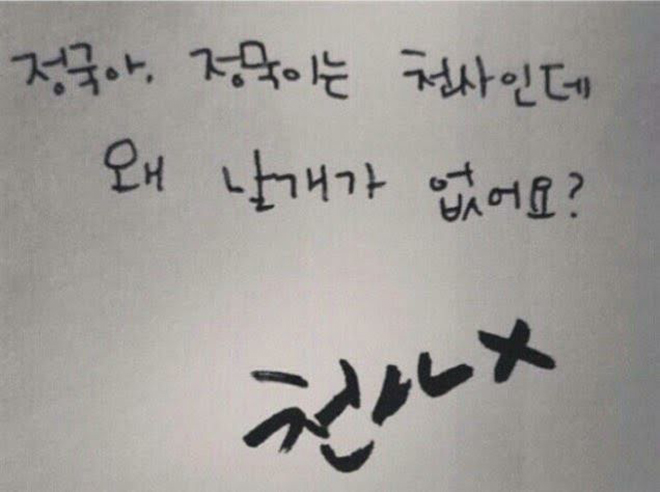 정국아. 정국이는 천사인데
왜 날개가 없어요?
천사 X